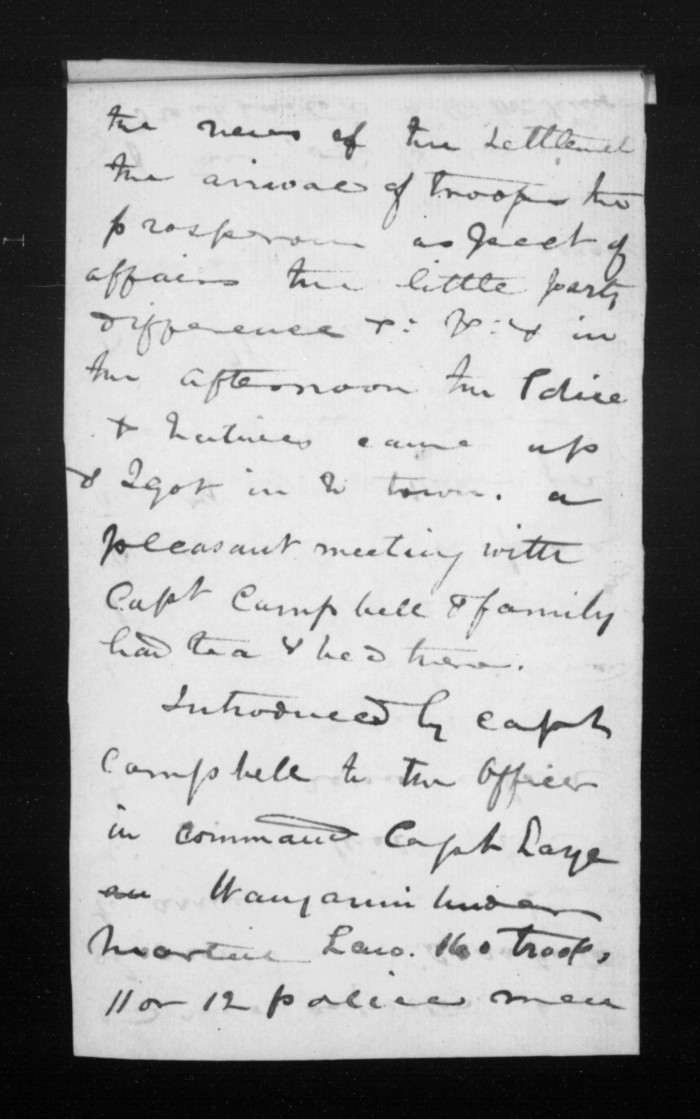 the news of the Settlement
the arrival of troops the
prosperous aspect of
affairs the little party
difference &c &c & in
the afternoon the Police
& Natives came up
& I got in to town. a
pleasant meeting with
Capt Campbell & family
had tea & bed there.
Introduced by Capt
Campbell to the Officer
in command Capt Laye
Wanganui under
Martial Law. 160 troops
11 or 12 police men